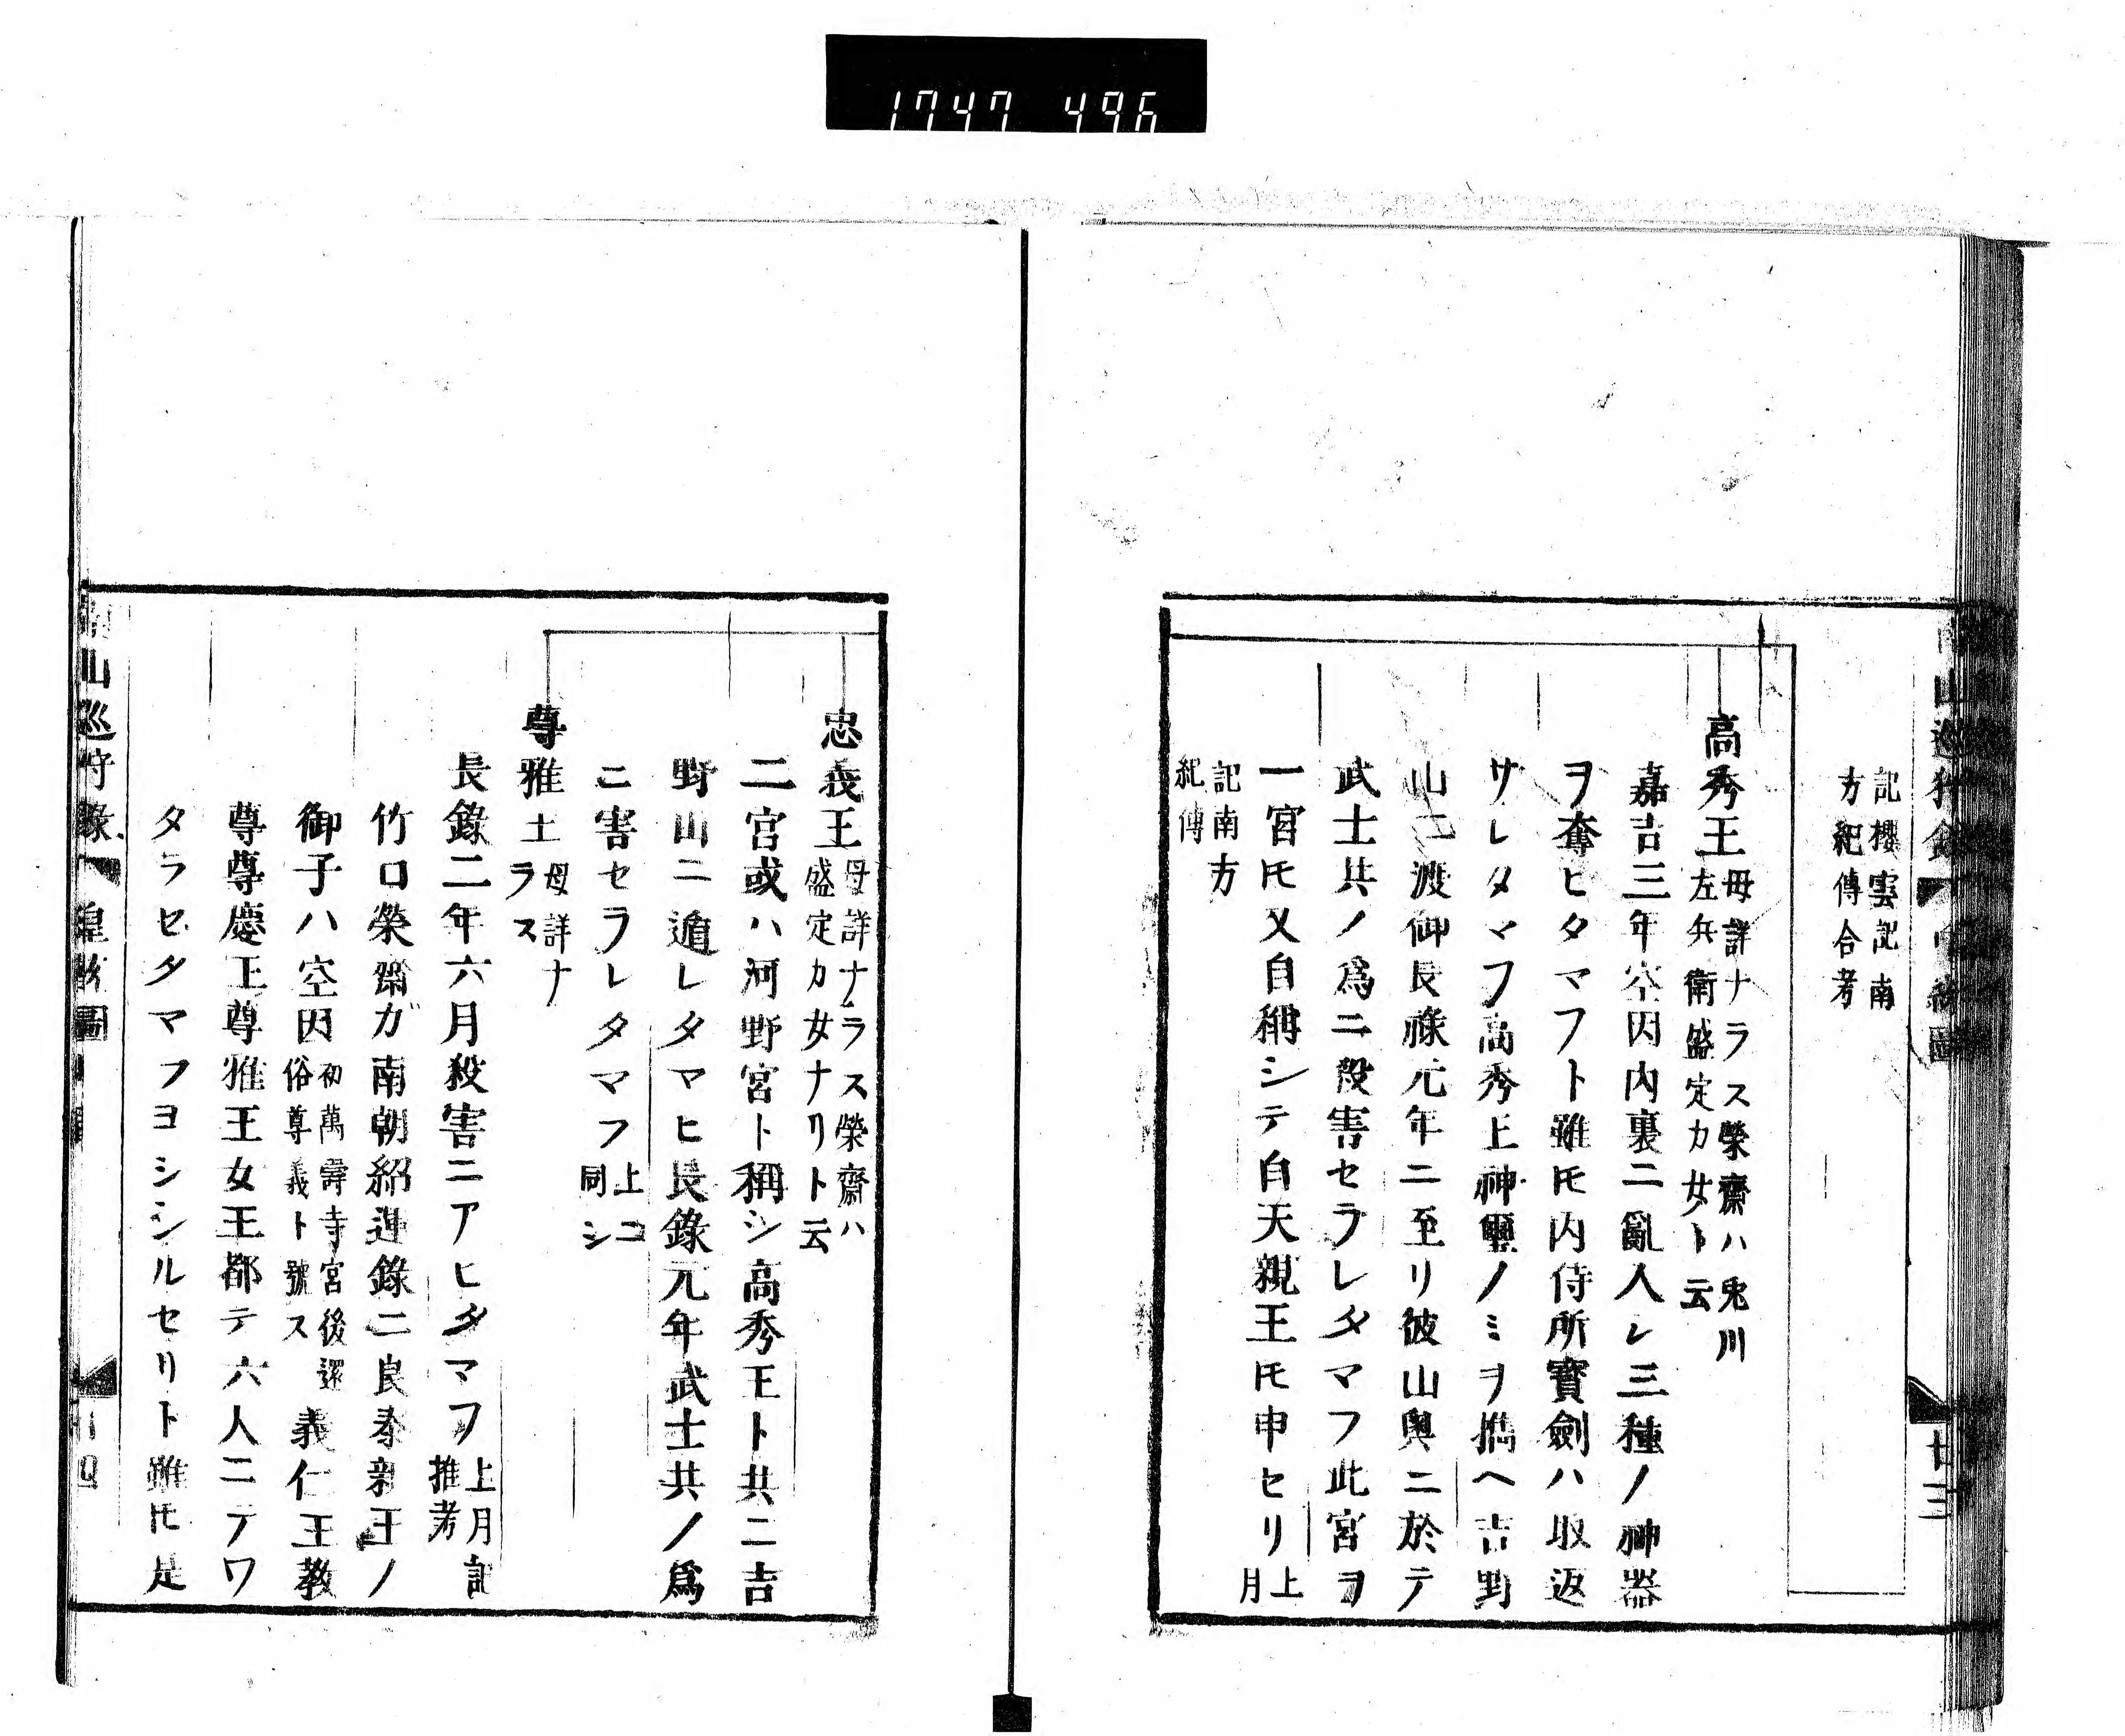 1747 496
記櫻雲記南
方紀傳合考
高秀王
母詳ナラス榮齋ハ兎川
左兵衛盛定カ女ト云
嘉吉三年空因內裏ニ亂入レ三種ノ神器
ヲ奪ヒタマフト雖𪜈內侍所寶劍ハ取返
サレタマフ高秀上神璽ノミヲ攜ヘ吉野
山ニ渡御長祿元年ニ至リ彼山奧ニ於テ
武士共ノ爲ニ殺害セラレタマフ此宮ヲ
一宮𪜈又自稱シテ自天親王𪜈申セリ
上月
記南方
紀傳
忠義王
母詳ナラス榮齋ハ
盛定カ女ナリト云
二宮或ハ河野宮ト稱シ高秀王ト共ニ吉
野山ニ遁レタマヒ長錄元年武士共ノ爲
ニ害セラレタマフ
上コ
同シ
尊雅王
母詳ナ
ラス
長錄二年六月殺害ニアヒタマフ
上月記
推考
竹口榮齋ガ南朝紹運錄ニ良泰親王ノ
御子ハ空因
初萬壽寺宮後還
俗尊義ト號ス
義仁王教
尊尊慶王尊雅王女王都テ六人ニテワ
タラセタマフヨシシルセリト雖𪜈是
山巡狩錄